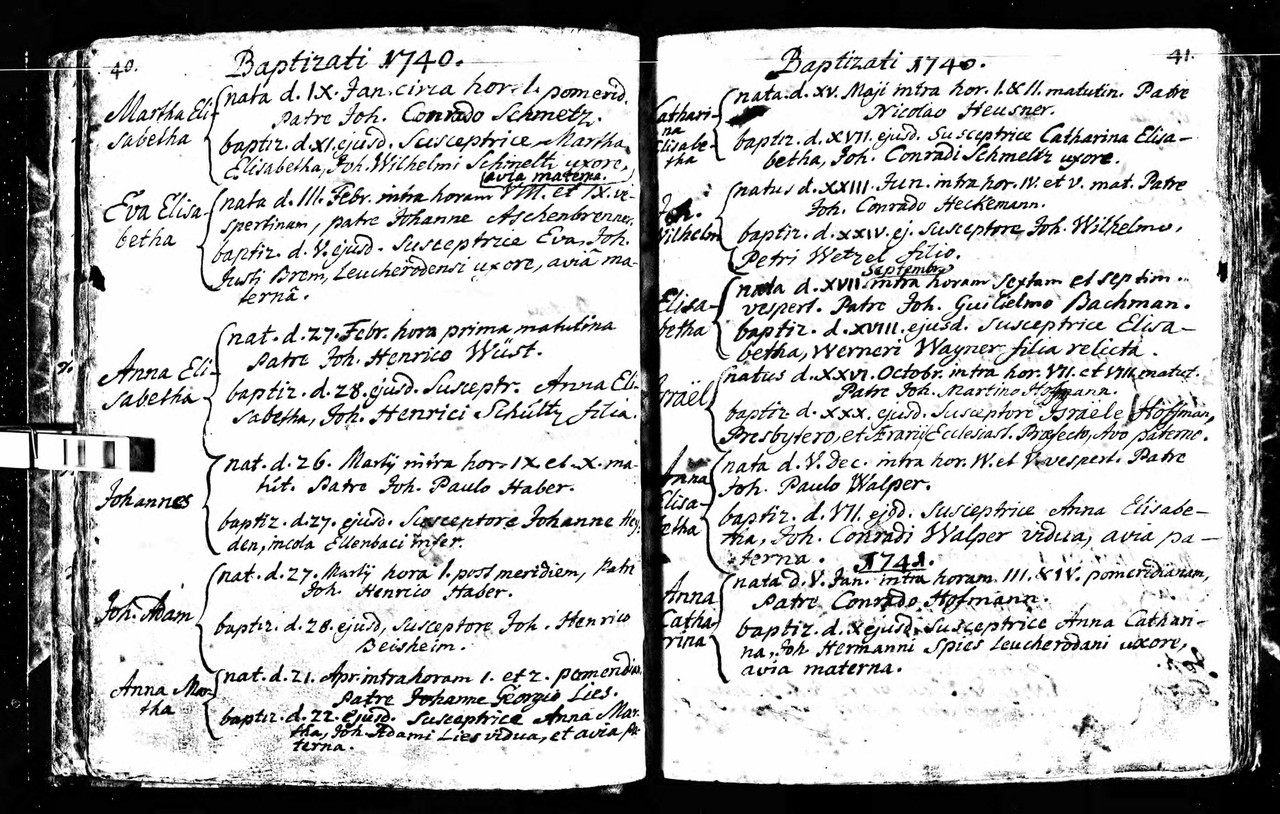 40.
Baptizati 1740.
Martha Eli-
sabetha
nata d. IX. Jan. circa hor. 1. pomerid.
Patre Joh. Conrado Schmetz.
baptiz. d. XI. ejusd. Susceptrice Martha
Elisabetha, Joh. Wilhelmi Schmeltz uxore,
avia materna.
Eva Elisa-
betha
nata d. III. Febr. intra horam VIII. et IX. ve-
spertinam, patre Johanne Aschenbrenner.
baptiz. d. V. ejusd. Susceptrice Eva, Joh.
Justi Brem, Leucherodensi uxore, aviâ ma-
ternâ.
Anna Eli-
sabetha
nat. d. 27. Febr. hora prima matutina
Patre Joh. Henrico Wüst.
baptiz. d. 28. ejusd. Susceptr. Anna Eli-
sabetha, Joh. Henrici Schültz filia.
Johannes
nat. d. 26. Martij intra hor. IX et X. ma-
tut. Patre Joh. Paulo Haber.
baptiz. d. 27. ejusd. Susceptore Johanne Hey-
den, incola Ellenbaci infer.
Joh. Adam
nat. d. 27. Martij hora 1. post meridiem, Patre
Joh. Henrico Haber.
baptiz. d. 28. ejusd, Susceptore Joh. Henrico
Beisheim.
Anna Mar-
tha
nat. d. 21. Apr. intra horam 1. et 2. pomeridia.
Patre Johanne Georgio Lies.
baptiz. d. 22. ejusd. Susceptrice Anna Mar-
tha, Joh. Adami Lies vidua, et avia pa-
terna.
41.
Baptizati 1740.
Cathari-
na
Elisabe-
tha
nata d. XV. Maji intra hor. I. & II. matutin. Patre
Nicolao Heusner.
baptiz. d. XVII. ejusd. Susceptrice Catharina Elisa-
betha, Joh. Conradi Schmeltz uxore.
Joh.
Wilhelm
natus d. XXIII. Jun. intra hor. IV. et V. mat. Patre
Joh. Conrado Heckemann.
baptiz. d. XXIV. ej. Susceptore Joh. Wilhelmo,
Petri Wetzel filio.
Elisa-
betha
Septembr.
nata d. XVII intra horam Sextam et septim.
vespert. Patre Joh. Guilielmo Bachman.
baptiz. d. XVIII. ejusd. Susceptrice Elisa-
betha, Werneri Wayner filia relicta.
Israël
natus d. XXVI. Octobr. intra hor. VII. et VIII. matut.
Patre Joh. Martino Hofmann.
baptiz. d. XXX. ejusd. Susceptore Israële Hoffman,
Presbytero, et Ærarij Ecclesiast. Præfecto, Avo paterno.
Anna
Elisa-
betha
nata d. V. Dec. intra hor. IV. et V. vespert. Patre
Joh. Paulo Walper.
baptiz. d. VII. ejsd. Susceptrice Anna Elisabe-
tha, Joh. Conradi Walper vidua, avia pa-
terna.
1741.
Anna
Catha-
rina
nata d. V. Jan. intra horam III. & IV. pomeridianam,
Patre Conrado Hofmann.
baptiz. d. X ejusd. Susceptrice Anna Cathari-
na, Joh. Hermanni Spies Leucherodani uxore,
avia materna.